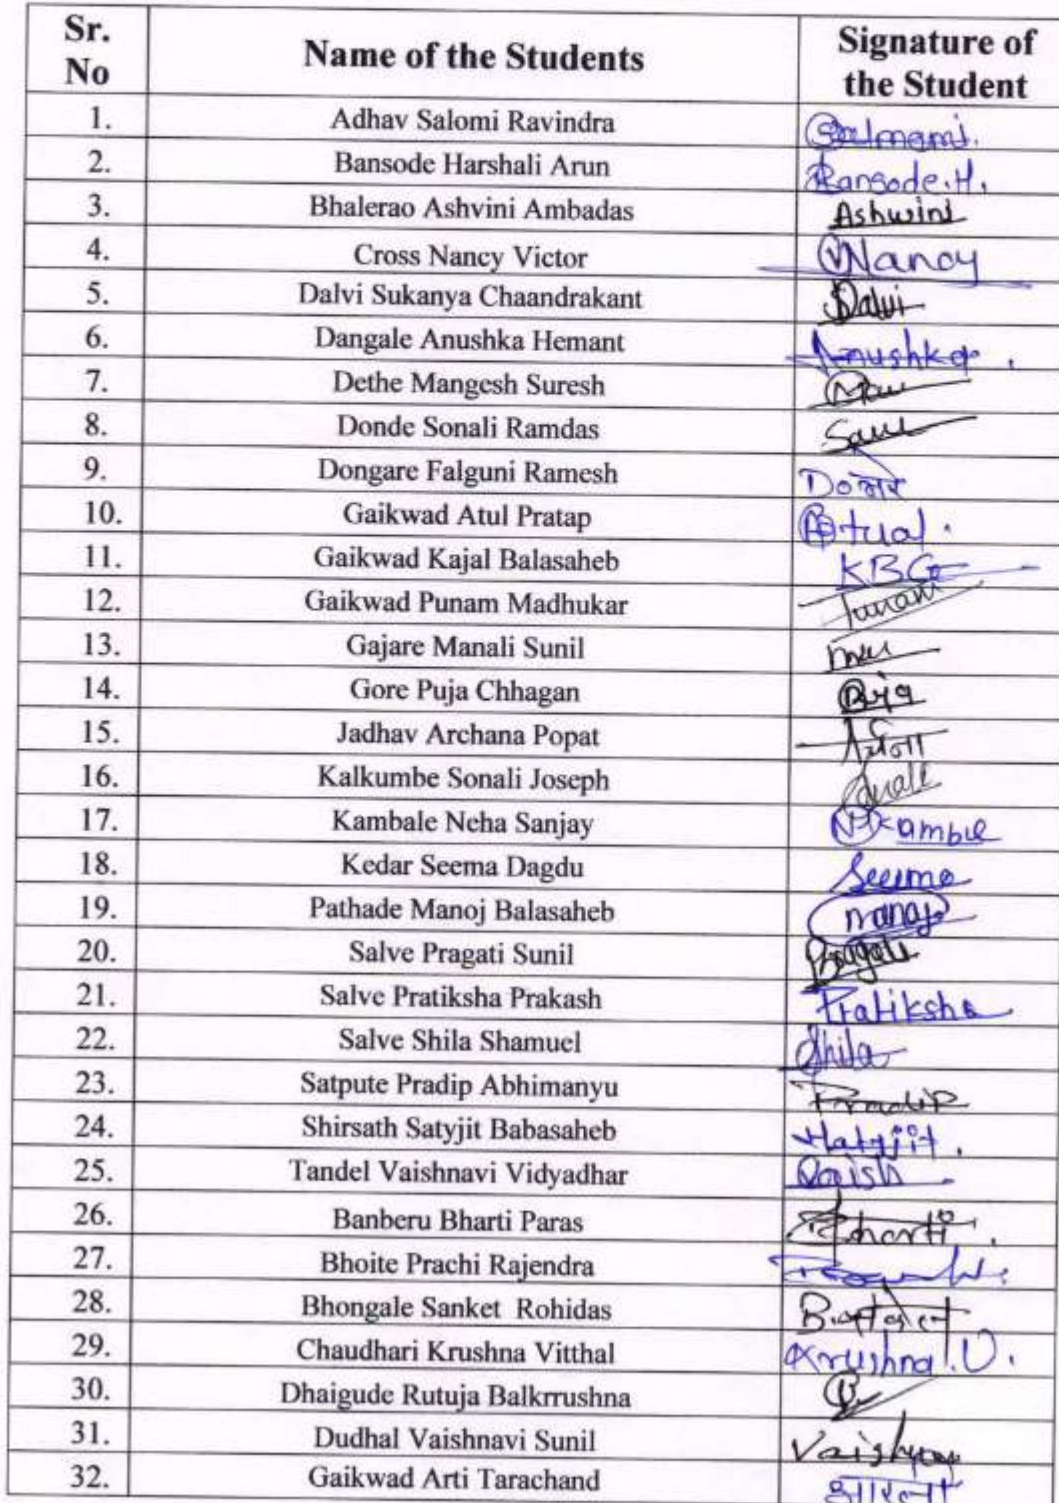 Sr. No Name of the Students Signature of the Student
1. Adhav Salomi Ravindra
2. Bansode Harshali Arun Bansode.H.
3. Bhalerao Ashvini Ambadas Ashwini
4. Cross Nancy Victor Nancy
5. Dalvi Sukanya Chaandrakant Dalvi
6. Dangale Anushka Hemant Anushka.
7. Dethe Mangesh Suresh
8. Donde Sonali Ramdas
9. Dongare Falguni Ramesh
10. Gaikwad Atul Pratap
11. Gaikwad Kajal Balasaheb KBG
12. Gaikwad Punam Madhukar Punam
13. Gajare Manali Sunil
14. Gore Puja Chhagan
15. Jadhav Archana Popat
16. Kalkumbe Sonali Joseph
17. Kambale Neha Sanjay
18. Kedar Seema Dagdu Seema
19. Pathade Manoj Balasaheb manoj
20. Salve Pragati Sunil Pragati
21. Salve Pratiksha Prakash Pratiksha
22. Salve Shila Shamuel Shila
23. Satpute Pradip Abhimanyu Pradip
24. Shirsath Satyjit Babasaheb Satyjit.
25. Tandel Vaishnavi Vidyadhar Vaish
26. Banberu Bharti Paras Bharti.
27. Bhoite Prachi Rajendra
28. Bhongale Sanket Rohidas
29. Chaudhari Krushna Vitthal Krushna.V.
30. Dhaigude Rutuja Balkrrushna
31. Dudhal Vaishnavi Sunil
32. Gaikwad Arti Tarachand